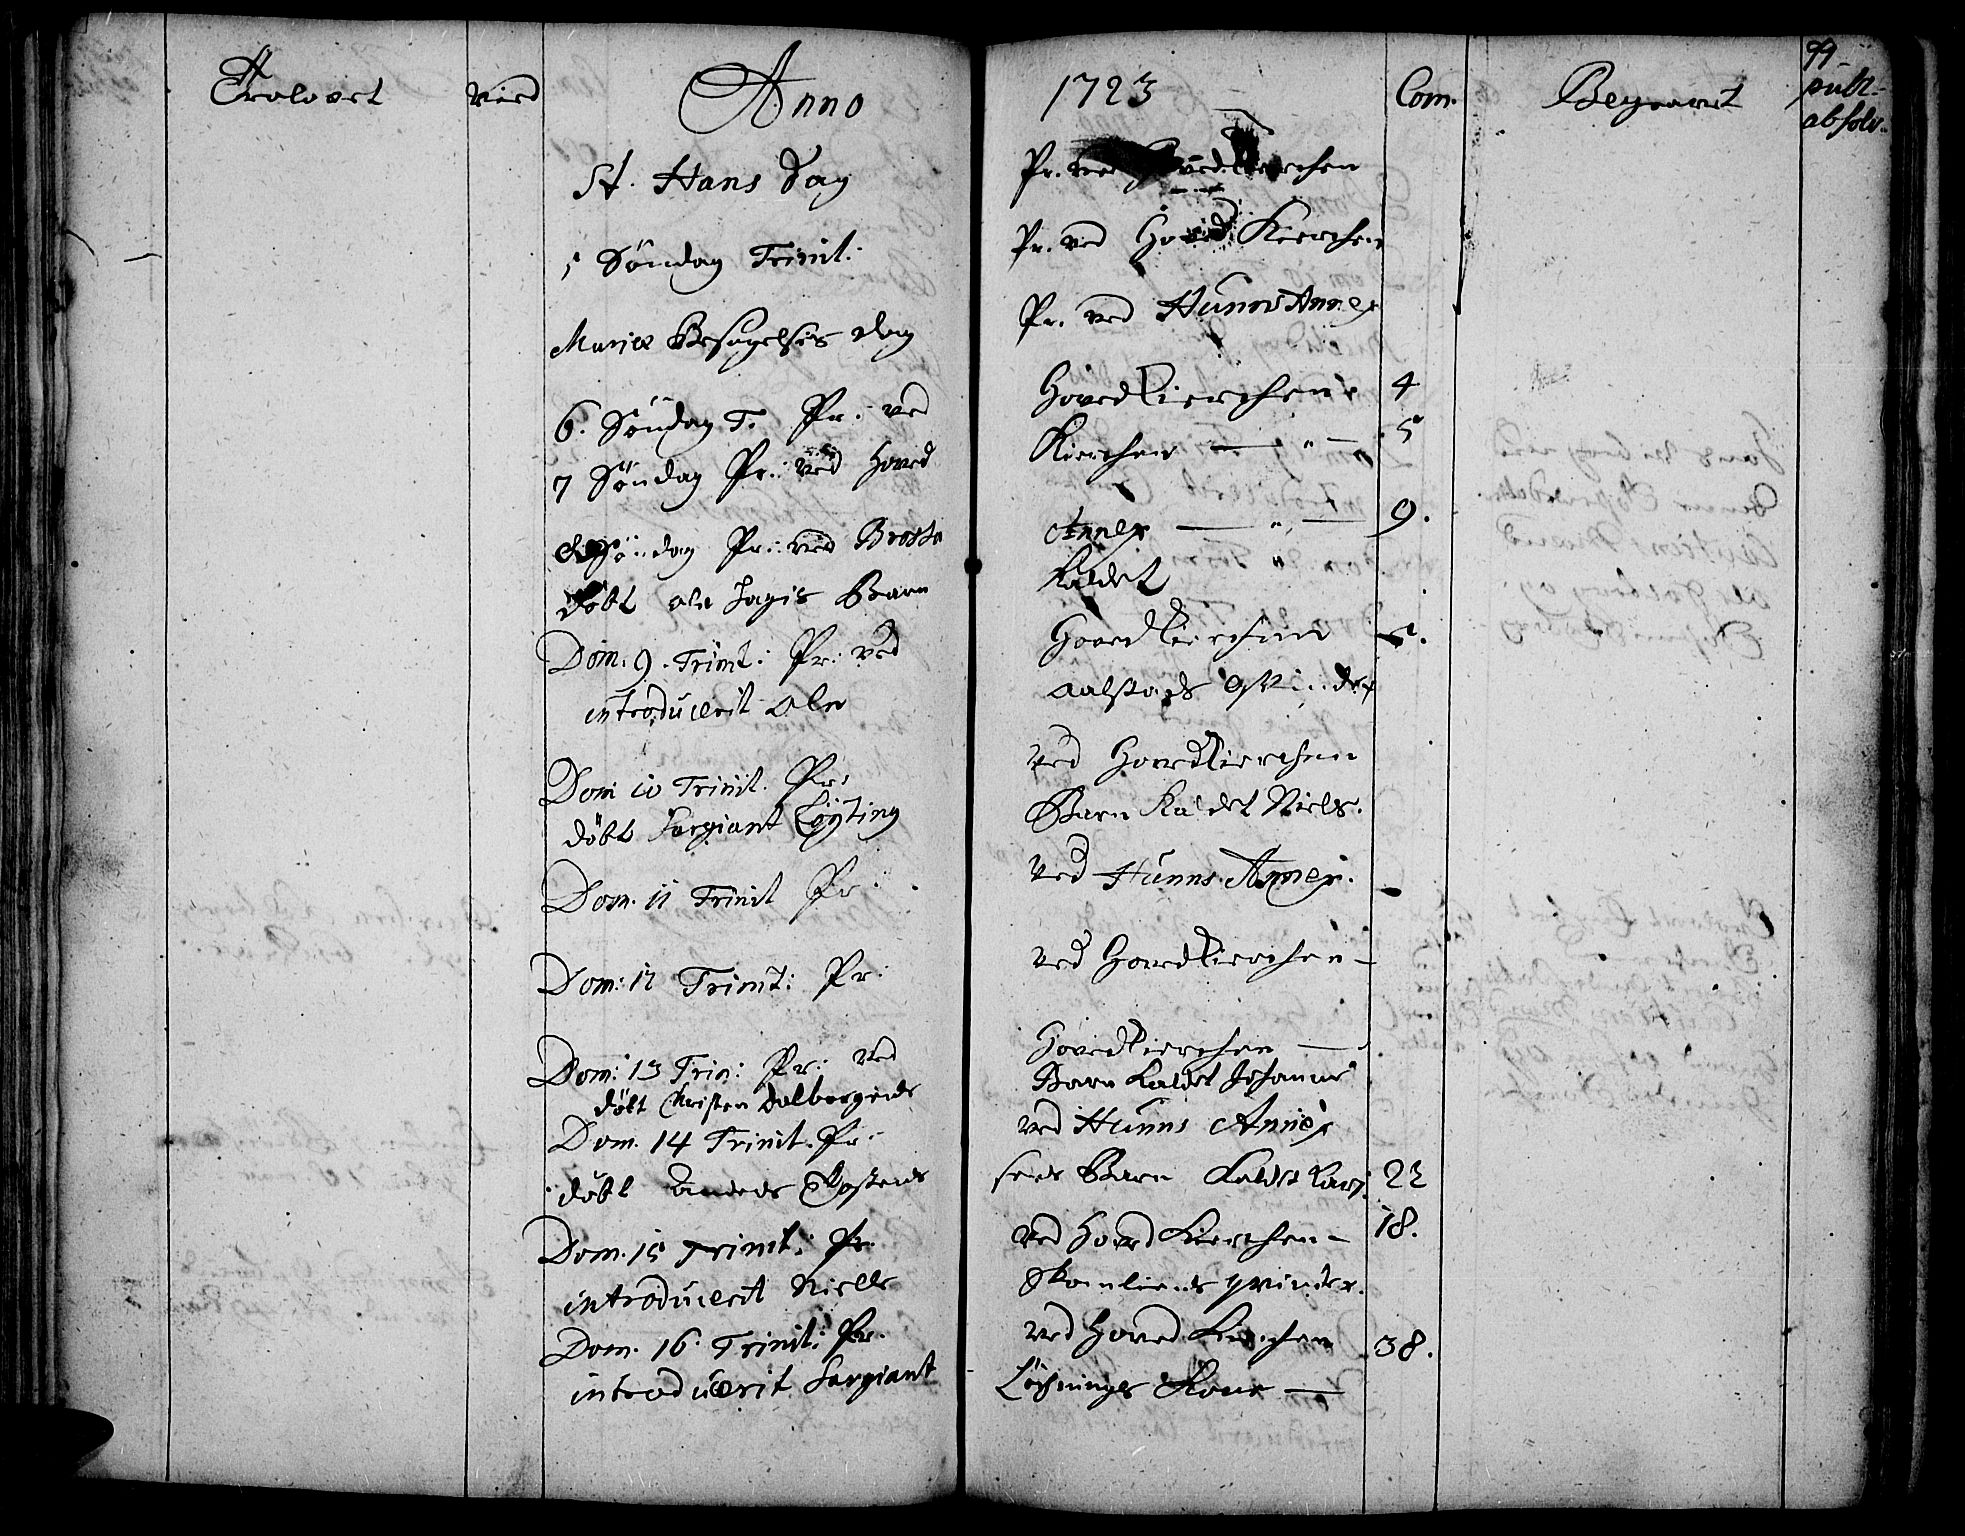 99
Trolovet
vied
Anno 1723
Com.
Begravet
publ.
absolv.
St. Hans Dag Pr. ved Hoved Kierchen
5 Söndag Trinit: Pr. ved Hoved Kierchen
Mariæ Besögelses Dag Pr. ved Hunns Annex
6. Söndag T. Pr: ved Hovedkierchen 4
7 Söndag Pr: ved Hoved Kierchen — " — 5
Söndag Pr: ved Annex — " — 9.
döbt ole Barn Kaldet "
Dom: 9. Trinit: Pr: ved Hovedkierchen
introducerit Ole aalstads qvinde
Dom 10 Trinit. Pr: ved Hovedkierchen
döbt Sergiant Barn Kaldet Niels.
Dom. 11 Trinit Pr: ved Hunns Annex.
Dom: 12 Trinit: Pr: ved Hovedkierchen —
Dom: 13 Trin: Pr: ved Hovedkierchen —
döbt Christen Dalborgends Barn Kaldet Johanne
Dom. 14 Trinit. Pr: ved Hunns Annex
döbt Barn Kaldet Kari. 22
Dom. 15 Trinit: Pr. ved Hoved Kierchen — 18.
introducerit Niels qvinde.
Dom. 16. Trinit: Pr. ved Hoved Kierchen 38.
introducerit Sergiant Kone —